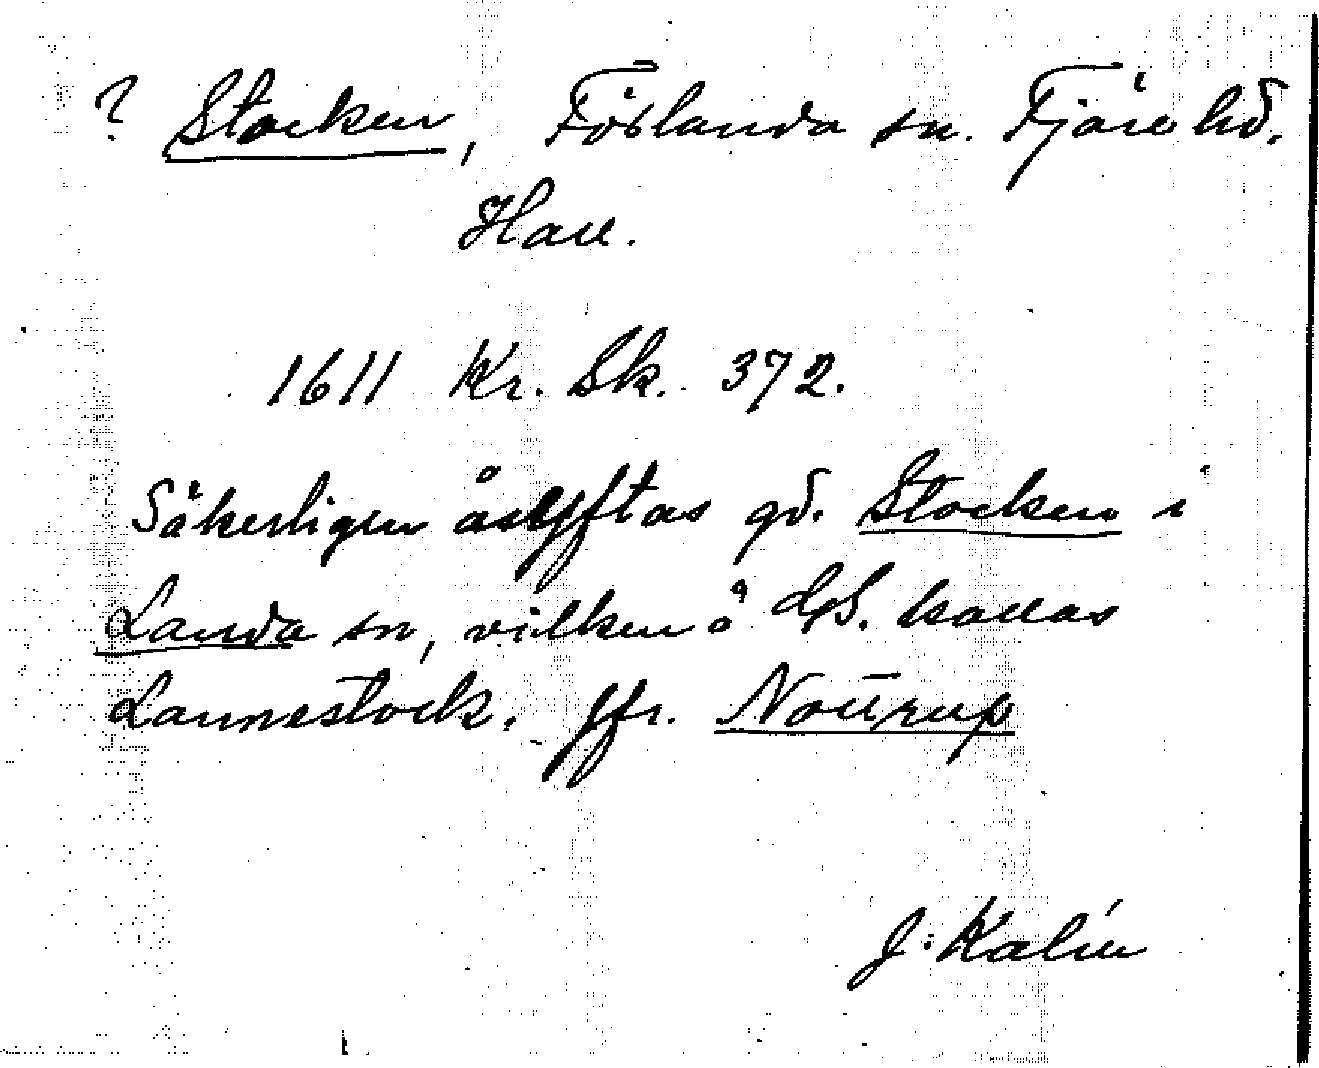 ? Stocken, Förlanda sn. Fjäre hd.
Hall.
1611 Kr. Sk. 372.
Säkerligen åsyftas gd. Stocken i
Landa sn, vilken å GS. kallas
Lannestock. Jfr. Nottrup
J. Kalén